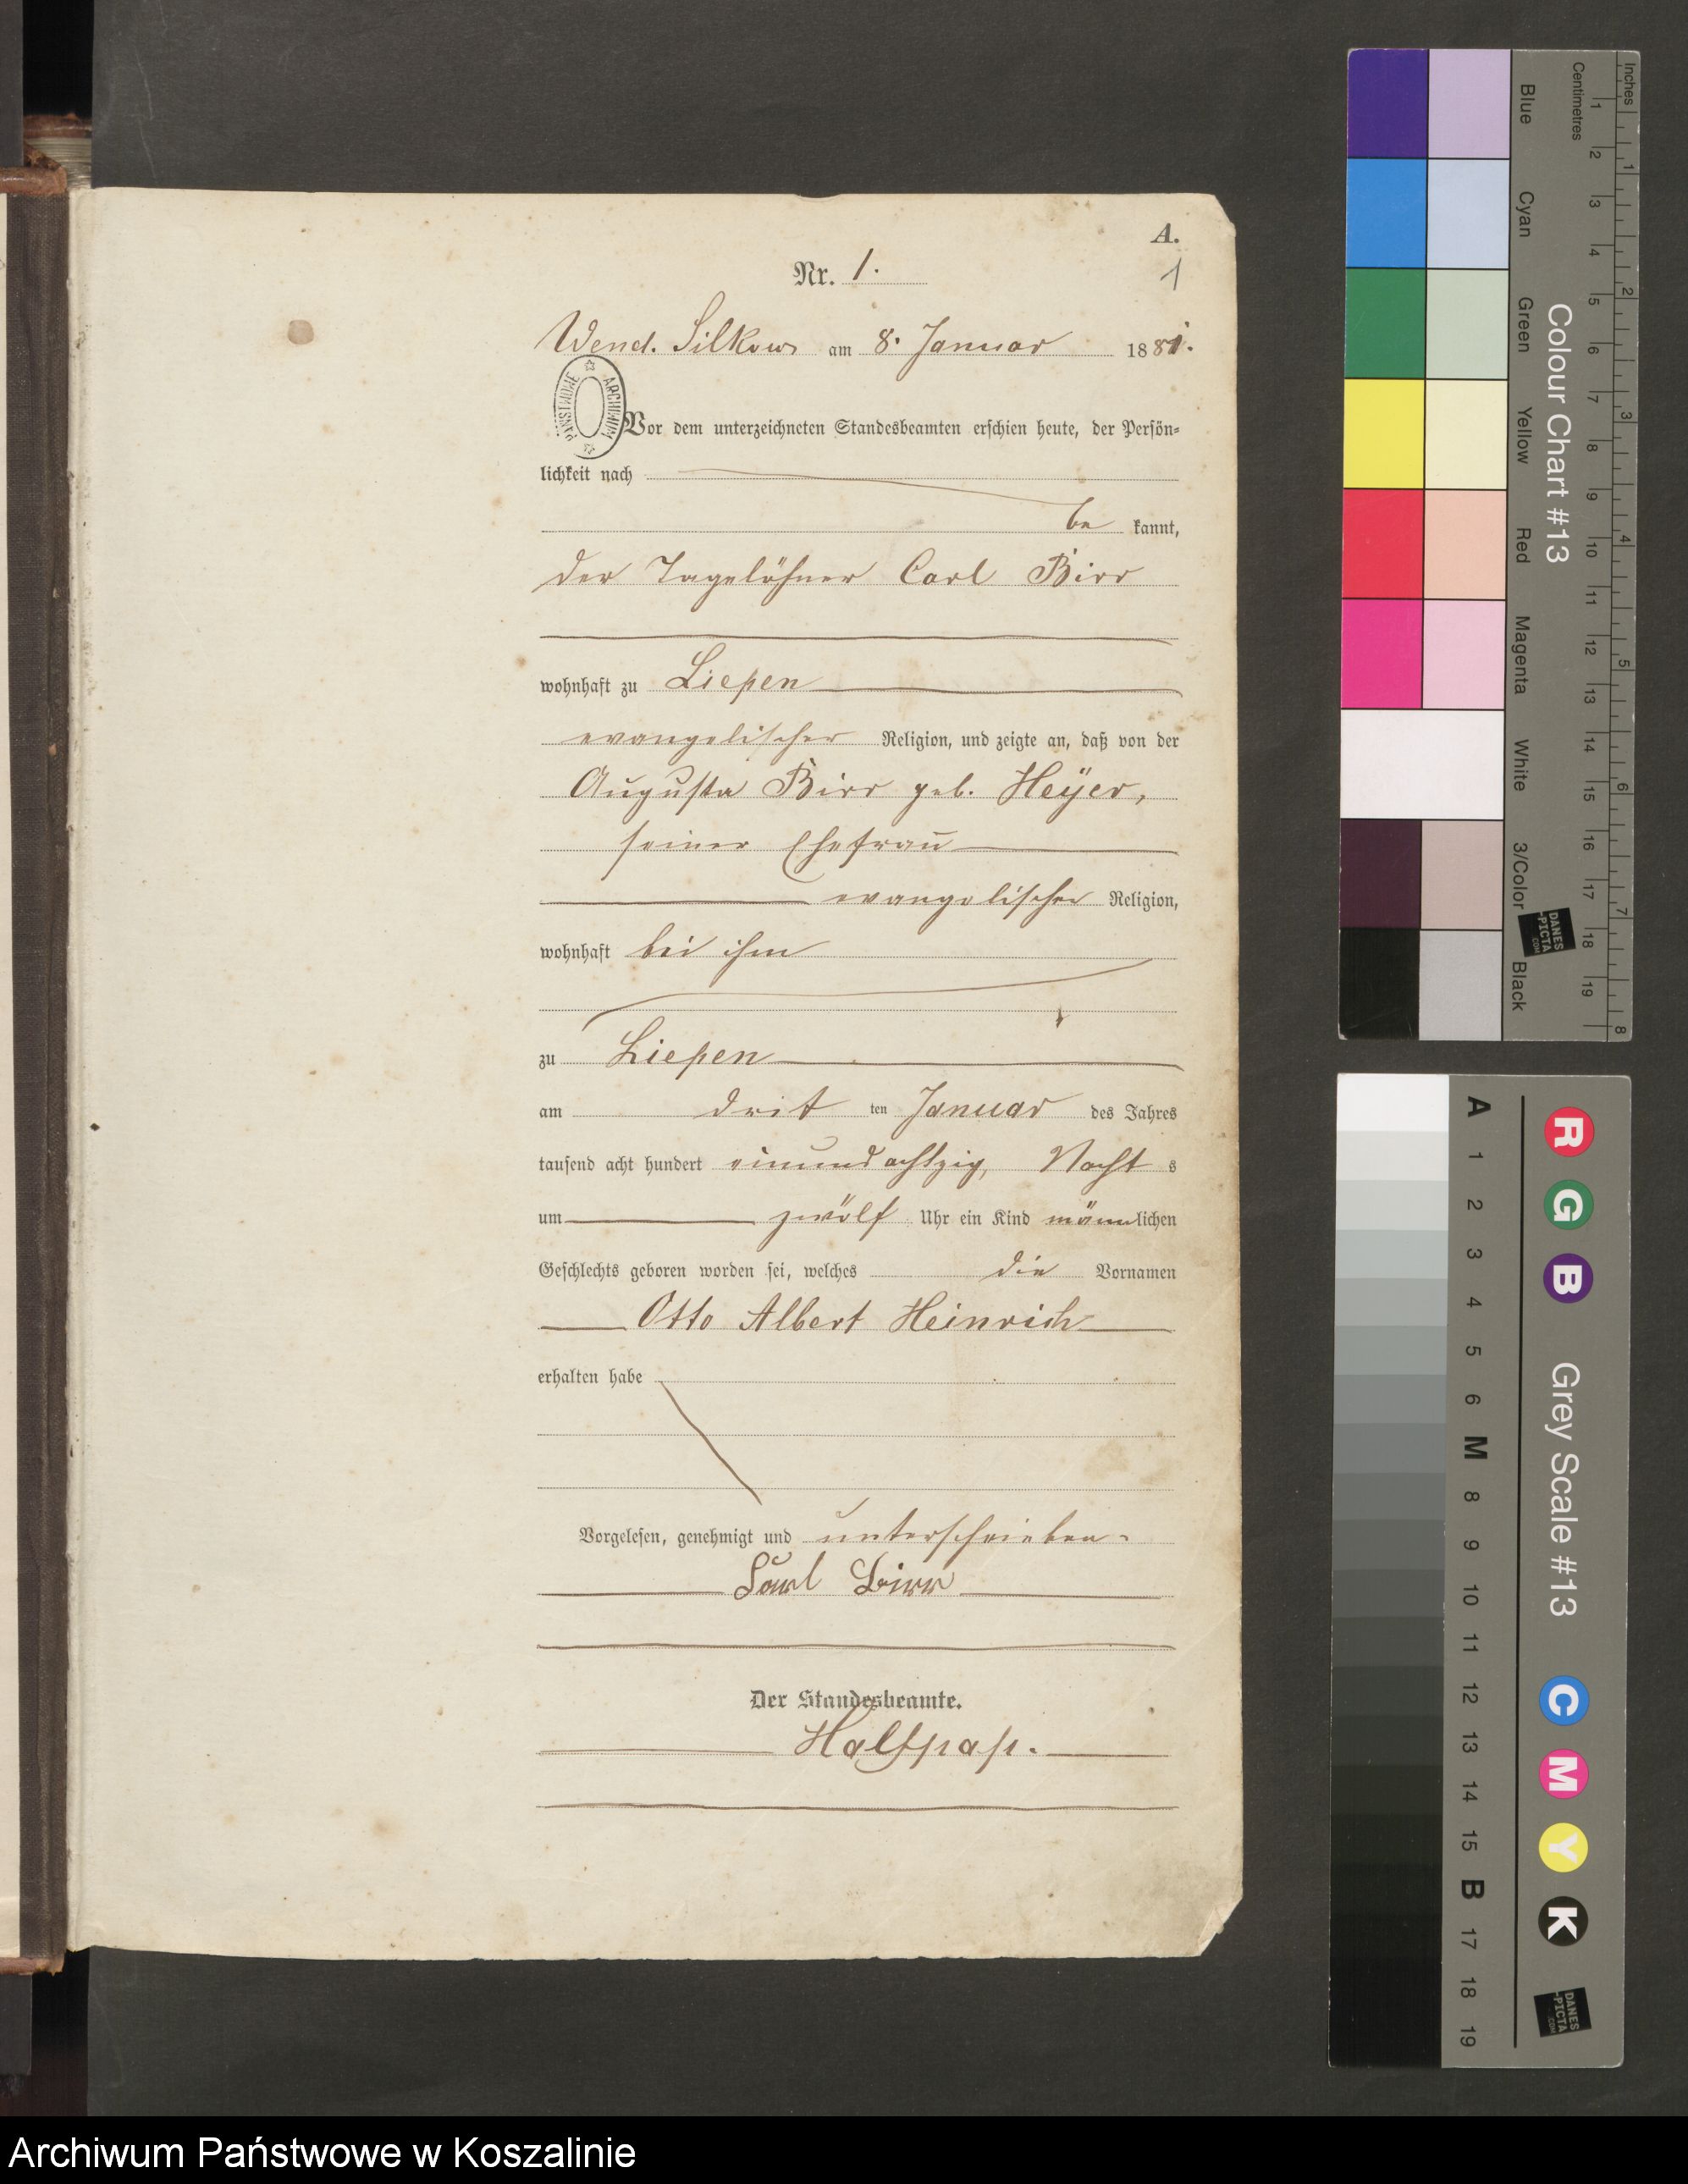 A.
Nr. 1.
1
Wend. Silkow am 8. Januar 1881.
PAŃSTWOWE ARCHIWUM
Vor dem unterzeichneten Standesbeamten erschien heute, der Persön-
lichkeit nach
be kannt,
der Tagelöhner Carl Birr
wohnhaft zu Liepen
evangelischer Religion, und zeigte an, daß von der
Augusta Birr geb. Heyer,
seiner Ehefrau
evangelischer Religion,
wohnhaft bei ihm
zu Liepen
am drit ten Januar des Jahres
tausend acht hundert einundachtzig, Nacht s
um zwölf Uhr ein Kind männlichen
Geschlechts geboren worden sei, welches die Vornamen
Otto Albert Heinrich
erhalten habe
Vorgelesen, genehmigt und unterschrieben.
Carl Birr
Der Standesbeamte.
Halfpap.
Inches
Centimetres
1 2 3 4 5 6 7 8
1 2 3 4 5 6 7 8 9 10 11 12 13 14 15 16 17 18 19
Colour Chart #13
Blue
Cyan
Green
Yellow
Red
Magenta
White
3/Color
Black
DANES
-PICTA
.COM
A 1 2 3 4 5 6 M 8 9 10 11 12 13 14 15 B 17 18 19
Grey Scale #13
R
G
B
C
M
Y
K
DANES
-PICTA
.COM
Archiwum Państwowe w Koszalinie